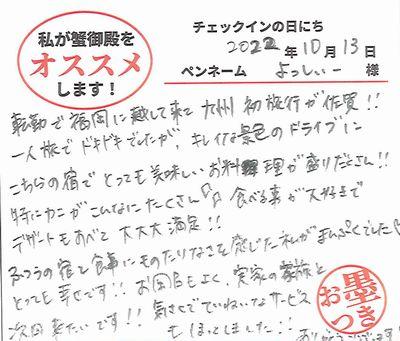 私が蟹御殿を
オススメ
します!
チェックインの日にち
2022年10月13日
ペンネーム よっしぃー 様
転勤で福岡に越して来て九州初旅行が佐賀!!
一人旅でドキドキでしたが、キレイな景色のドライブに
こちらの宿でとっても美味しいお料理が盛りだくさん!!
特にカニがこんなにたくさん 食べる事が大好きで
デザートもあべて大大大満足!!
ふつうの宿で食事にものたりなさを感じた私がまんぷくでした
とっても幸せです!! お風呂もよく、実家の家族と
次回来たいです!! 気さくでていねいなサービス
もほっとしました!! ありがとうございます
お墨つき